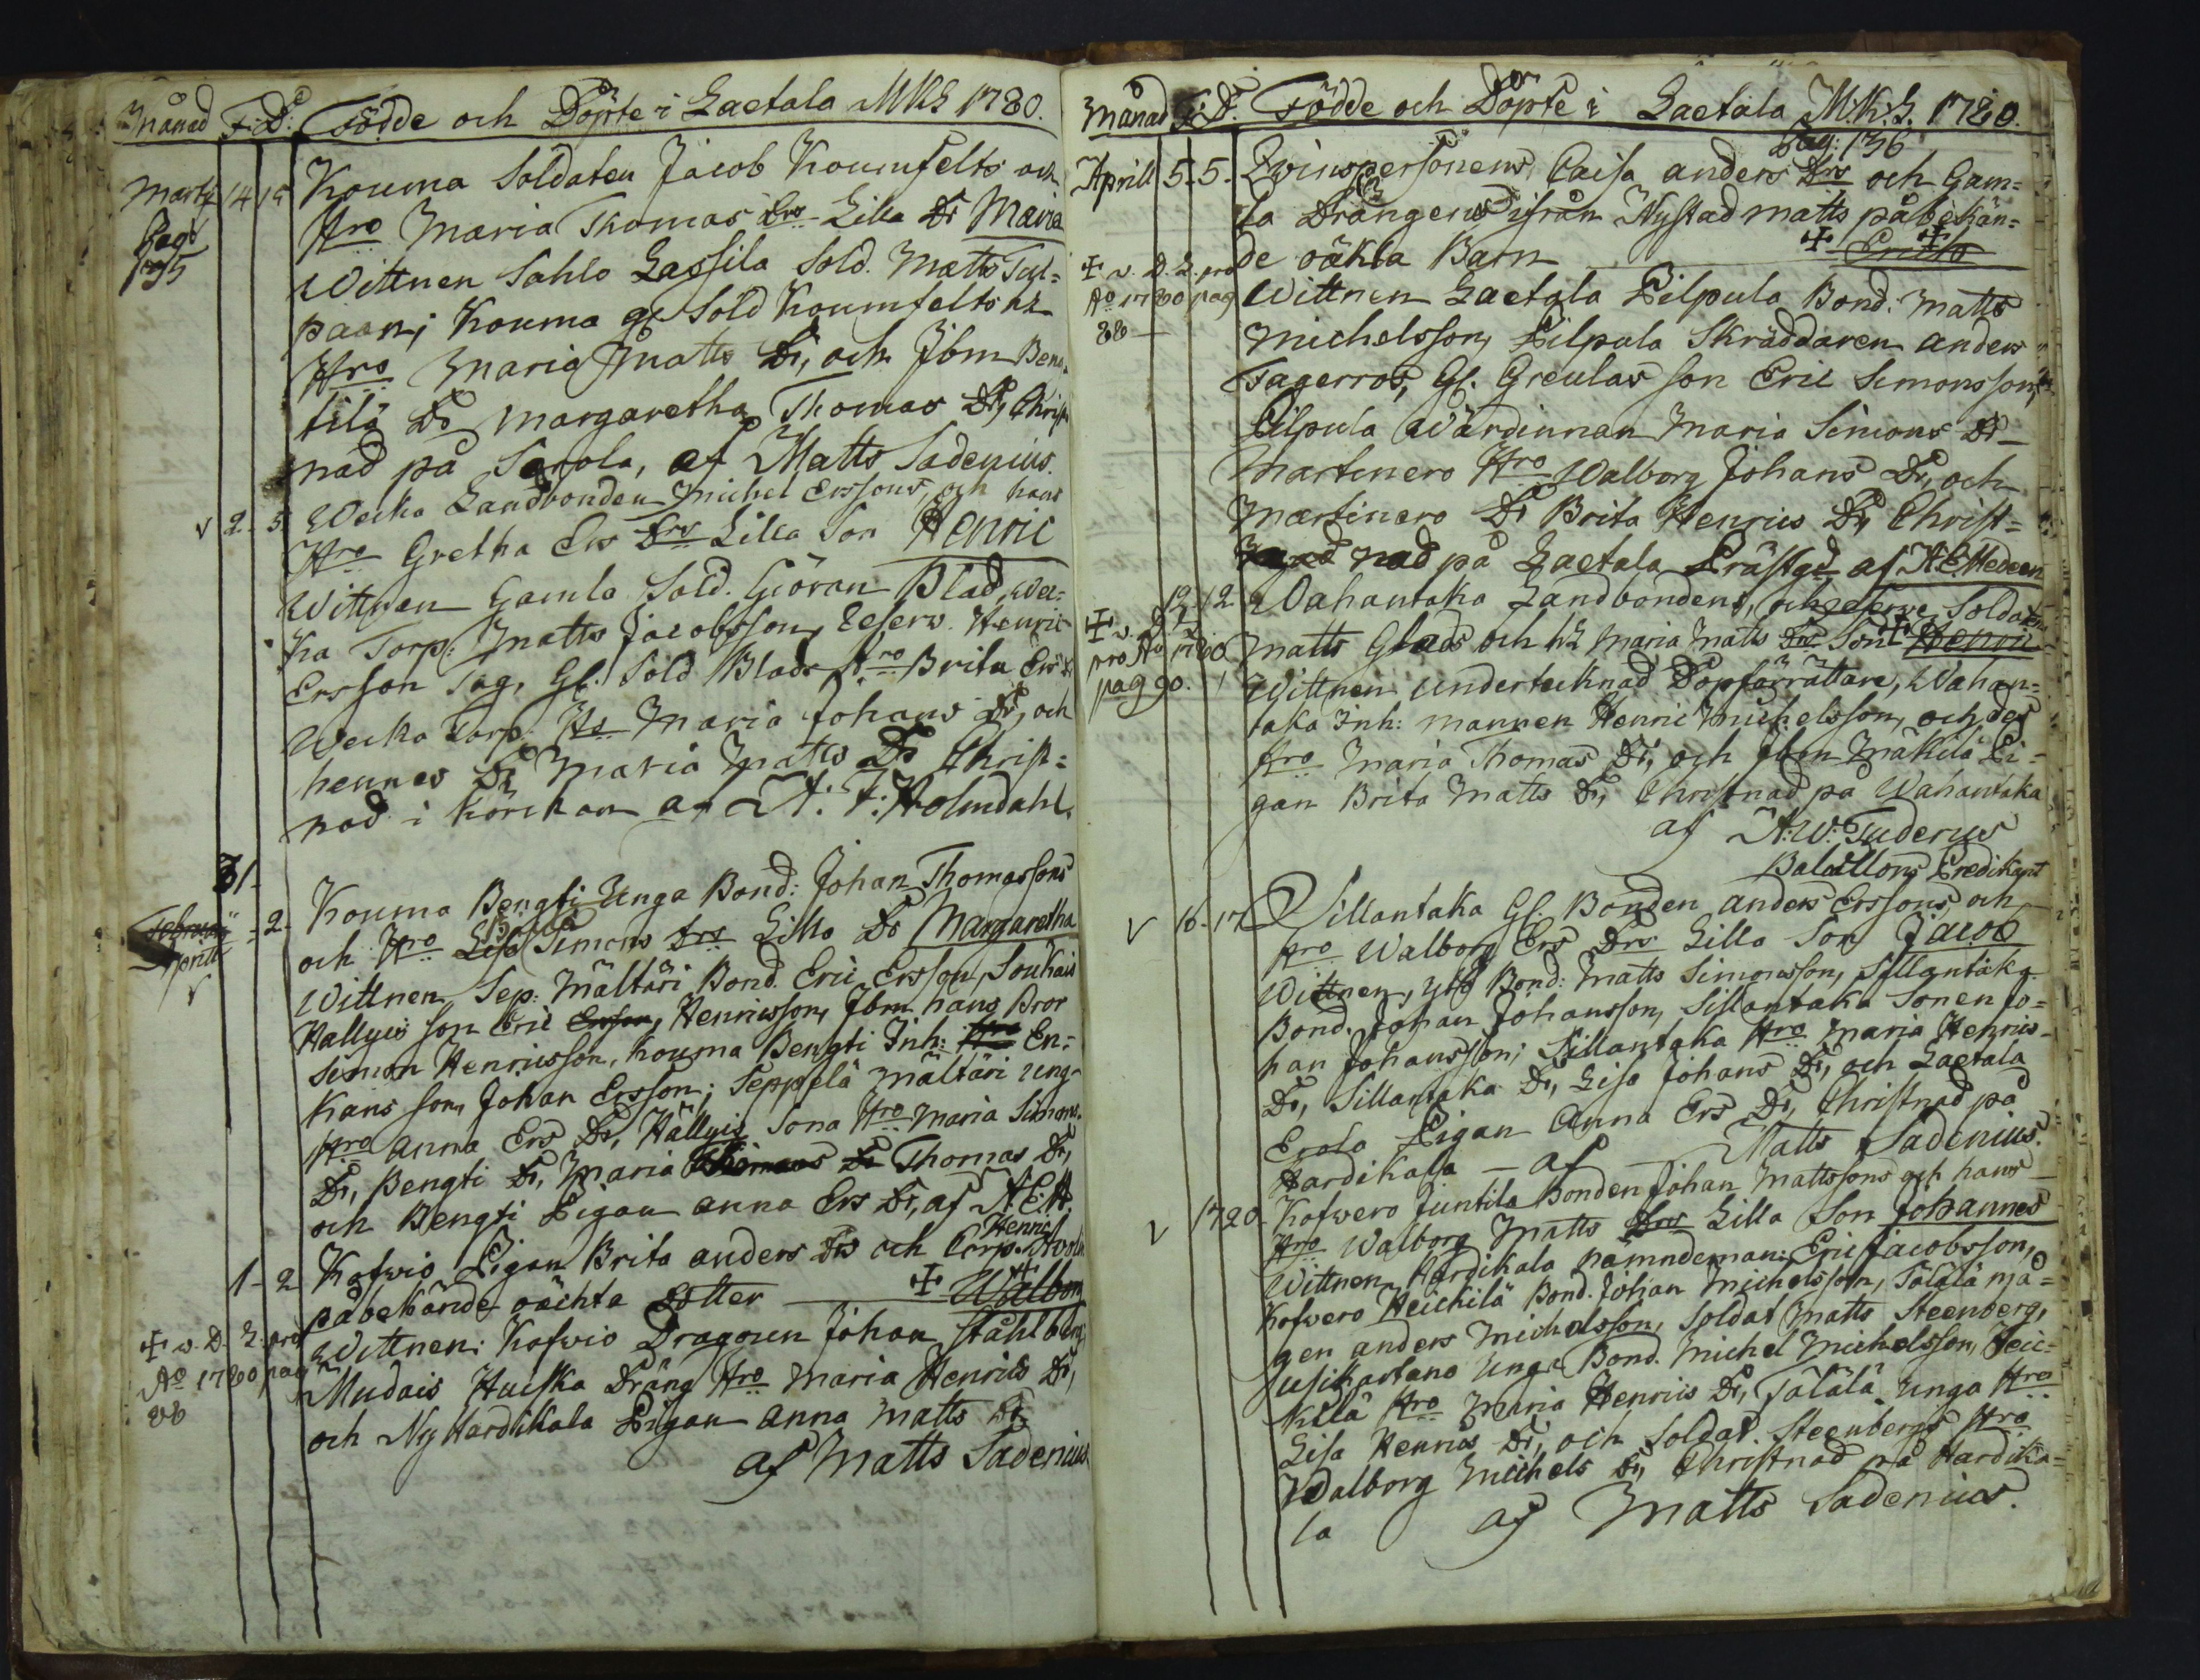 Månad F: D: Födde och Döpte i Laetala MKS 1780.
Martz 14 15 Kouma Soldaten Jacob Koumfelts och
Hro Maria Thomas Drs Lilla Dr Maria
Pag: 135
Wittnen Sahlo Lassila Sold. Matts Tul=
paan; Kouma gl Sold Koumfelts hs
Hro Maria Matts Dr, och Jbm Ben
tilä Dr Margaretha Thomas Dr, Christ
nad på Sarola, af Matts Sadenius.
v 2. 5. Wecka Landbonden Michel Erssons, och hans
Hro Gretha Ers Drs Lilla Son Henric
Wittnen Gamla Sold. Giöran Blad, Wec=
ka Torp: Matts Jacobsson, Reserv. Henric
Ersson Tag, Gl. Sold Blads Hro Brita Ers Dr
Wecka Torp. Hro Maria Johans Dr, och
hennes Dr Maria Matts Dr Christ=
nad i Körckan af A. F: Holmdahl.
31-
Februarii Aprill v
2- Kouma Bengti Unga Bond: Johan Thomassons
och Hro Lisa Simons Drs Lilla Dr Margaretha
Wittnen Sep: Mältäri Bond. Eric Ersson, Soukais
Hallyis son Eric Ersson, Henricsson, Jbm hans Bror
Simon Henricsson, Kouma Bengti Inh: Hro En=
kans son, Johan Ersson; Seppelä Mältäri Ung-
Hro Anna Ers Dr, Hällyis Sona Hro Maria Simons
Dr, Bengti Dr, Maria Thomas Dr Thomas Dr,
och Bengti Pigan Anna Ers Dr, af A.E.H.
1- 2 Kofwio Pigan Brita Anders Drs och Corp. Henric
påbekände oächta Dotter ✠ Walborg ✠
✠ v. D. L. pro Ao 1780 pag 88
Wittnen: Kofwio Dragoun Johan Ståhlberg,
Mudais Huiska Dräng Hro Maria Henrics Dr,
och Ny Hardikala Pigan Anna Matts Dr,
af Matts Sadenius
Månad F. D. Födde och Döpte i Laetala M:K:S. 1780.
Pag: 136
Aprill 5. 5. Qvinspersonens Caisa Anders Drs och Gam=
la Drängens ifrån Nystad Matts påbekän=
de oäkta Barn ✠ ✠
✠ v. D. L. pro Ao 1780 pag 88
Wittnen Laetala Pilpula Bond. Matts
Michelsson, Pilpula Skräddaren Anders
Fagerros, Gl. Greulas son Eric Simonsson,
Pilpula Wärdinnan Maria Simons Dr
Martinero Hro Walborg Johans Dr, och
Martinero Dr Brita Henrics Dr, Christ=
nad på Laetala Prästgd af A.E. Hedeen
12. 12 Wahantaka Landbondens, och Reserve Soldaten
Matts Glads och hs Maria Matts Drs Son ✠ Henric
✠ v. D. L. pro Ao 1780 pag 90.
Wittnen undertecknad Döpförrättare, Wahan=
taka Inh: mannen Henric Michelsson, och des
Hro Maria Thomas Dr, och Jbm Mäkilä Pi=
gan Brita Matts Dr, Christnad på Wahantaka
af A: W: Tuderus
Balaillons Predikant
v 16. 17 Sillantaka Gl. Bonden Anders Erssons, och
Hro Walborg Ers Drs Lilla Son Jacob
Wittnen, Bond: Matts Simonsson, Sillantaka
Bond. Johan Johansson, Sillantaka Sonen Jo=
han Johansson; Sillantaka Hro Maria Henrics
Dr, Sillantaka Dr, Lisa Johans Dr, och Laetala
Erola Pigan Anna Ers Dr, Christnad på
Hardikala – af – Matts Sadenius.
v 17 20. Kofwero Juntila Bonden Johan Mattssons och hans
Hro Walborg Matts Drs Lilla Son Johannes
Wittnen Hardikala nämndeman: Eric Jacobsson,
Kofwero Heickilä Bond. Johan Michelsson, Tälälä måg=
gen Anders Michelsson, Soldat Matts Steenberg,
Jusikartano Unga Bond. Michel Michelsson, Heic=
kilä Hro Maria Henrics Dr, Tälälä Unga Hro
Lisa Henrics Dr, och Soldat Steenbergs Hro
Walborg Michels Dr, Christnad på Hardika=
la af Matts Sadenius.